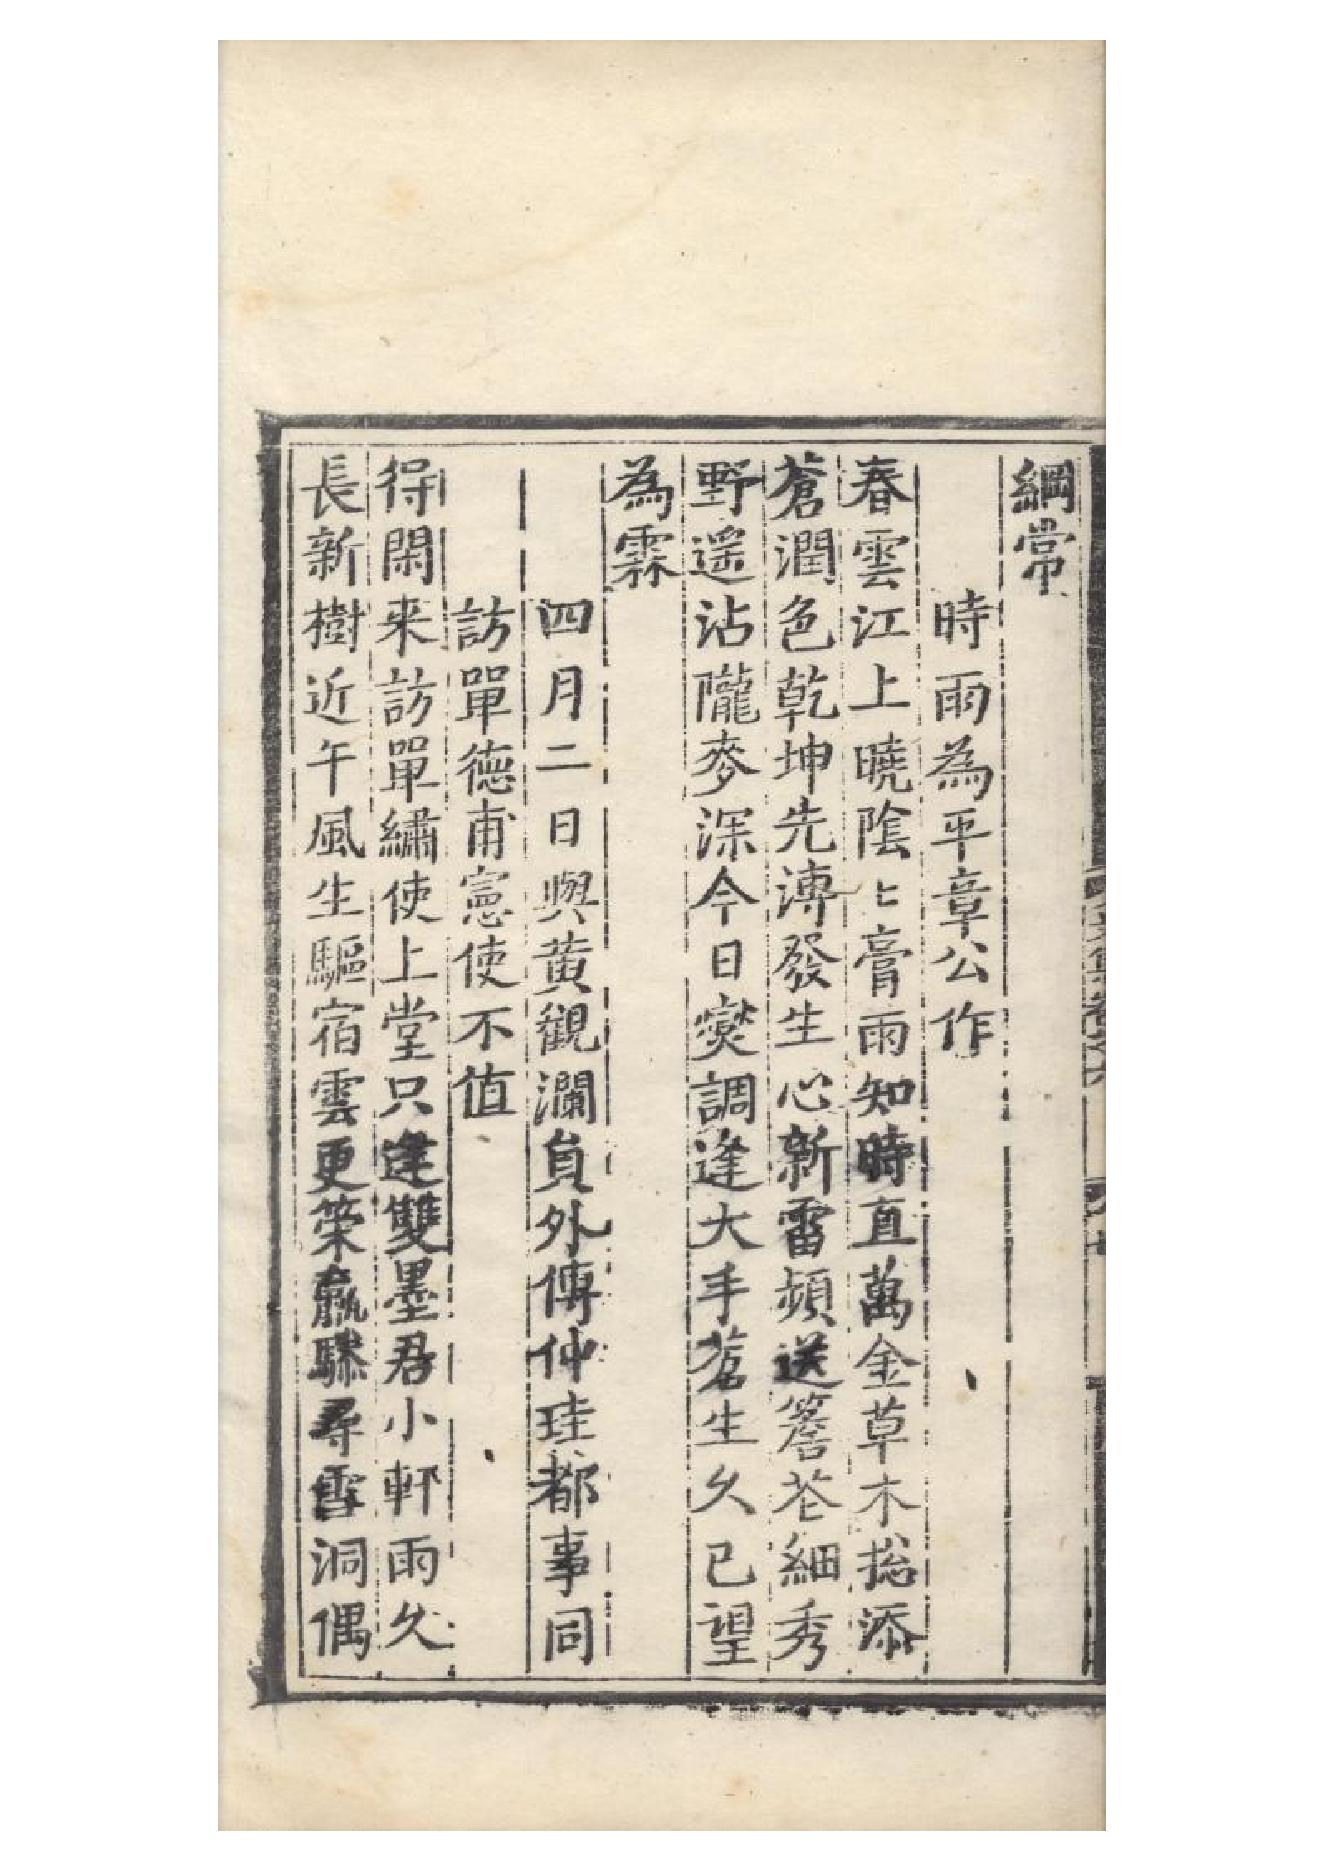 綱常
時雨為平章公作
春雲江上曉陰〻膏雨知時直萬金草木揔添
蒼潤色乾坤先溥發生心新雷頻送簷花細秀
野遥沾隴麥深今日燮調逢大手蒼生久已望
為霖
四月二日與黄觀瀾負外傅仲珪都事同
訪單德甫憲使不值
得閑来訪單繡使上堂只逢雙墨君小軒雨久
長新樹近午風生驅宿雲更策羸驂尋雪洞偶